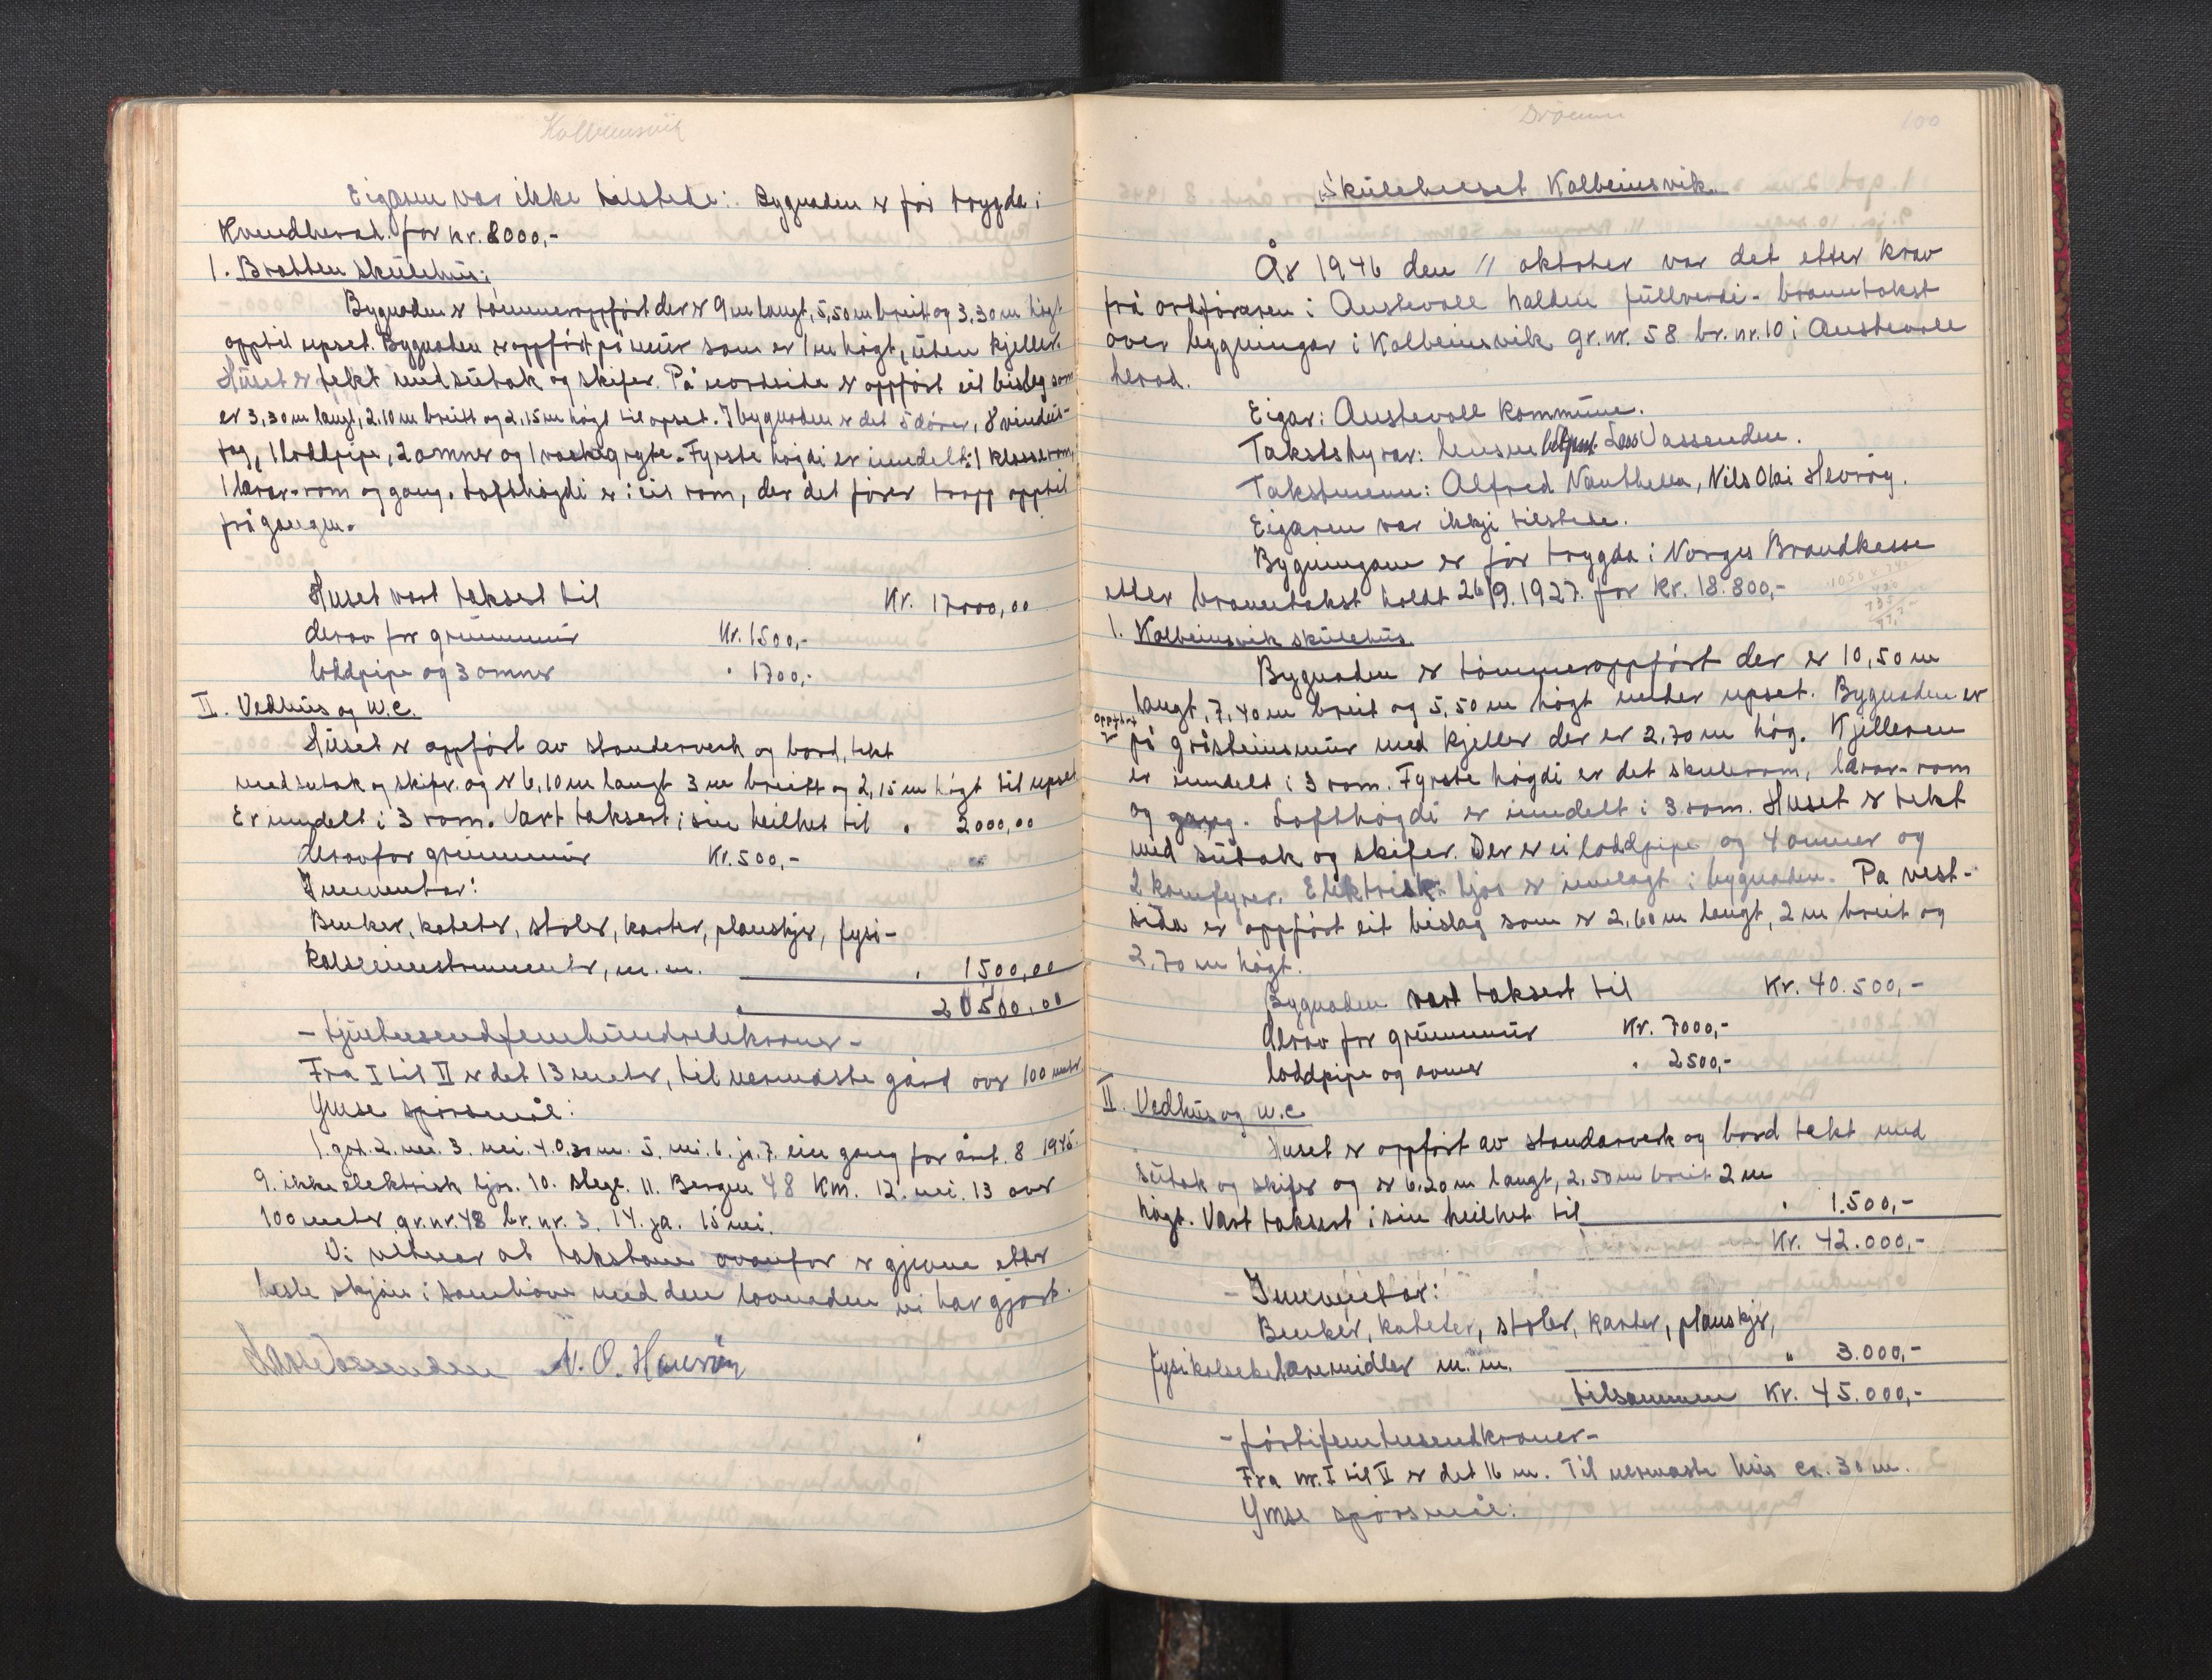 Kolbeinsvik
Eigaren var ikke tilstede: Bygnaden er før trygda i
Kvindherad for kr. 8000,-
1. Bratten skülehüs:
Bygnaden er tømmeroppført der er 9 m langt, 5,50 m breitt og 3.30 m högt
opptil upset. Bygnaden er oppført på mür som er 1 m högt, üten kjeller.
Hüset er tekt med sütak og skifer. På nordsida er oppført eit bislag som
er 3,30 m langt, 2.10 m breitt og 2,15 m högt til upset. I bygnaden er det 5 dører, 8 vindüs-
fag, 1 loddpipe, 2 omner og 1 vaskegryte. Fyrste høgdi er inndelt i 1 klasserom,
1 lærar-rom og gang. Lofthøgdi er i eit rom, der det fører trapp opptil
frå gangen.
Huset vart taksert til Kr. 17000,00
derav for grünnmür Kr. 1500,-
loddpipe og 3 omner " 1700,-
II. Vedhüs og W.C.
Hüset er oppført av standerverk og bord, tekt
med sutak og skifer og er 6,10 m langt 3 m breitt og 2,15 m høgt til upset
Er inndelt i 3 rom. Vart taksert i sin heilhet til " 2000,00
derav for grünnmür Kr. 500,-
Inventar:
Benker, kateter, stoler, karter, planskjer, fysi-
kalske instrumenter, m.m. " 1500,00
" 20500,00
- tjütusendfemhündredekroner -
Fra I til II er det 13 meter, til nærmaste gård over 100 meter
Ymse spørsmål:
1. god. 2. nei. 3. nei. 4. 0,30 m. 5. nei. 6. ja. 7. ein gang for året. 8 1945.
9. ikke elektrisk ljos. 10. Slege. 11. Bergen 48 Km. 12. nei. 13 over
100 meter gr.nr. 48 br. nr. 3. 14. ja. 15 nei.
Vi vitnar at takstane ovanfor er gjevne etter
beste skjøn i samhøve med den lovnaden vi har gjort.
Lars Vassenden N. O. Hevrøy
Drønen
100
Skülehuset Kolbeinsvik.
År 1946 den 11 oktober var det etter krav
frå ordføraren i Austevoll halden füllverdi-branntakst
over bygningar i Kolbeinsvik gr.nr. 58 br. nr. 10 i Austevoll
herad.
Eigar: Austevoll kommüne.
Takststyrar: lensm betjent Lars Vassenden.
Takstmenn: Alfred Naustheller, Nils Olai Hevrøy.
Eigaren var ikkji tilstede.
Bygningane er før trygda i Norges Brandkasse
etter branntakst holdt 26/9.1927. for Kr. 18.800,-
1. Kolbeinsvik skülehüs.
Bygnaden er tømmeroppført der er 10,50 m
langt, 7,40 m breit og 5,50 m högt under upset. Bygnaden er
oppført
på gråsteinsmür med kjeller der er 2.70 m høg. Kjelleren
er inndelt i 3 rom. Fyrste høgdi er det skulerom, lærar-rom
og gang. Lofthøgdi er inndelt i 3 rom. Huset er tekt
med sütak og skifer. Der er ei loddpipe og 4 omner og
2 komfyrer. Elektrisk ljos er innlagt i bygnaden. På vest-
sida er oppført eit bislag som er 2,60 m langt, 2 m breit og
2,70 m høgt.
Bygnaden vart taksert til Kr. 40.500,-
derav for grünnmür Kr. 7000,-
loddpipe og omner " 2500,-
II. Vedhüs og W.C
Huset er oppført av standarverk og bord tekt med
sütak og skifer og er 6.20 m langt, 2,50 m breit 2 m
høgt. Vart taksert i sin heilhet til " 1.500,-
Kr. 42.000,-
- Innventar:
Benker, kateter, stoler, karter, planskjer,
fysikalske læremidler m.m. " 3.000,-
tilsammen Kr. 45.000,-
- førtifemtusendkroner -
Fra nr. I til II er det 16 m. Til nærmaste hüs ca. 30 m.
Ymse spørsmål: